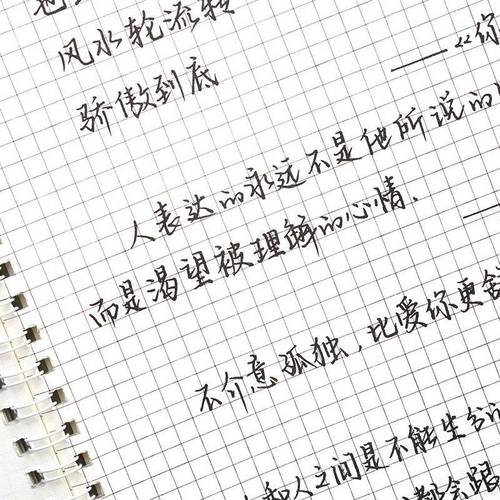 风水轮流转
骄傲到底
——“你
人表达的永远不是他所说的
而是渴望被理解的心情.
不介意孤独,比爱你更舍
和人之间是不能坐台
都会跟